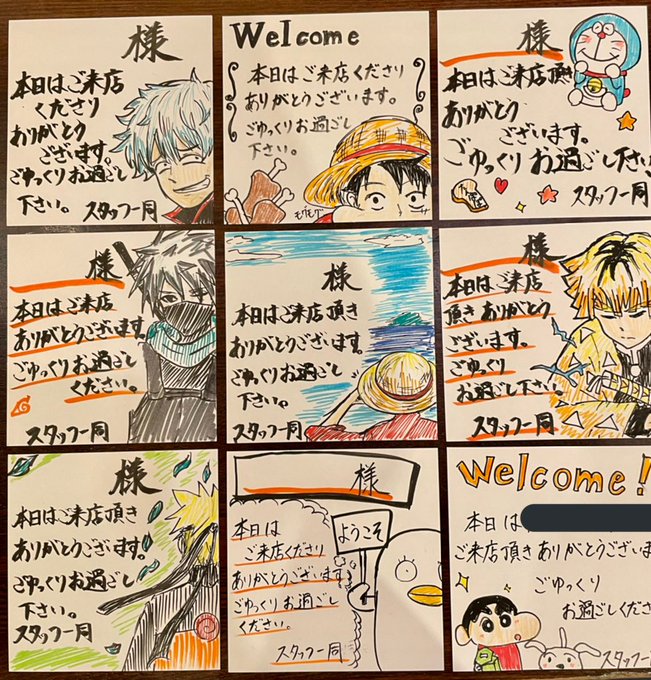 様
本日はご来店
くださり
ありがとう
ございます。
ごゆっくりお過ごし
下さい。
スタッフ一同
Welcome
本日はご来店くださり
ありがとうございます。
ごゆっくりお過ごし
下さい。
モグモグ
様
本日はご来店頂き
ありがとう
ございます。
ごゆっくりお過ごし下さい
スタッフ一同
様
本日はご来店
ありがとうございます。
ごゆっくりお過ごし
ください。
スタッフ一同
様
本日はご来店頂き
ありがとうございます。
ごゆっくりお過ごし
下さい。
スタッフ一同
様
本日はご来店
頂きありがとう
ございます。
ごゆっくり
お過ごし下さい
スタッフ一同
様
本日はご来店頂き
ありがとうございます。
ごゆっくりお過ごし
下さい。
スタッフ一同
様
ようこそ
本日は
ご来店くださり
ありがとうございます
ごゆっくりお過ごし
ください。
スタッフ一同
Welcome!
本日は
ご来店頂きありがとうございま
ごゆっくり
お過ごしくださ
スタッフ一同